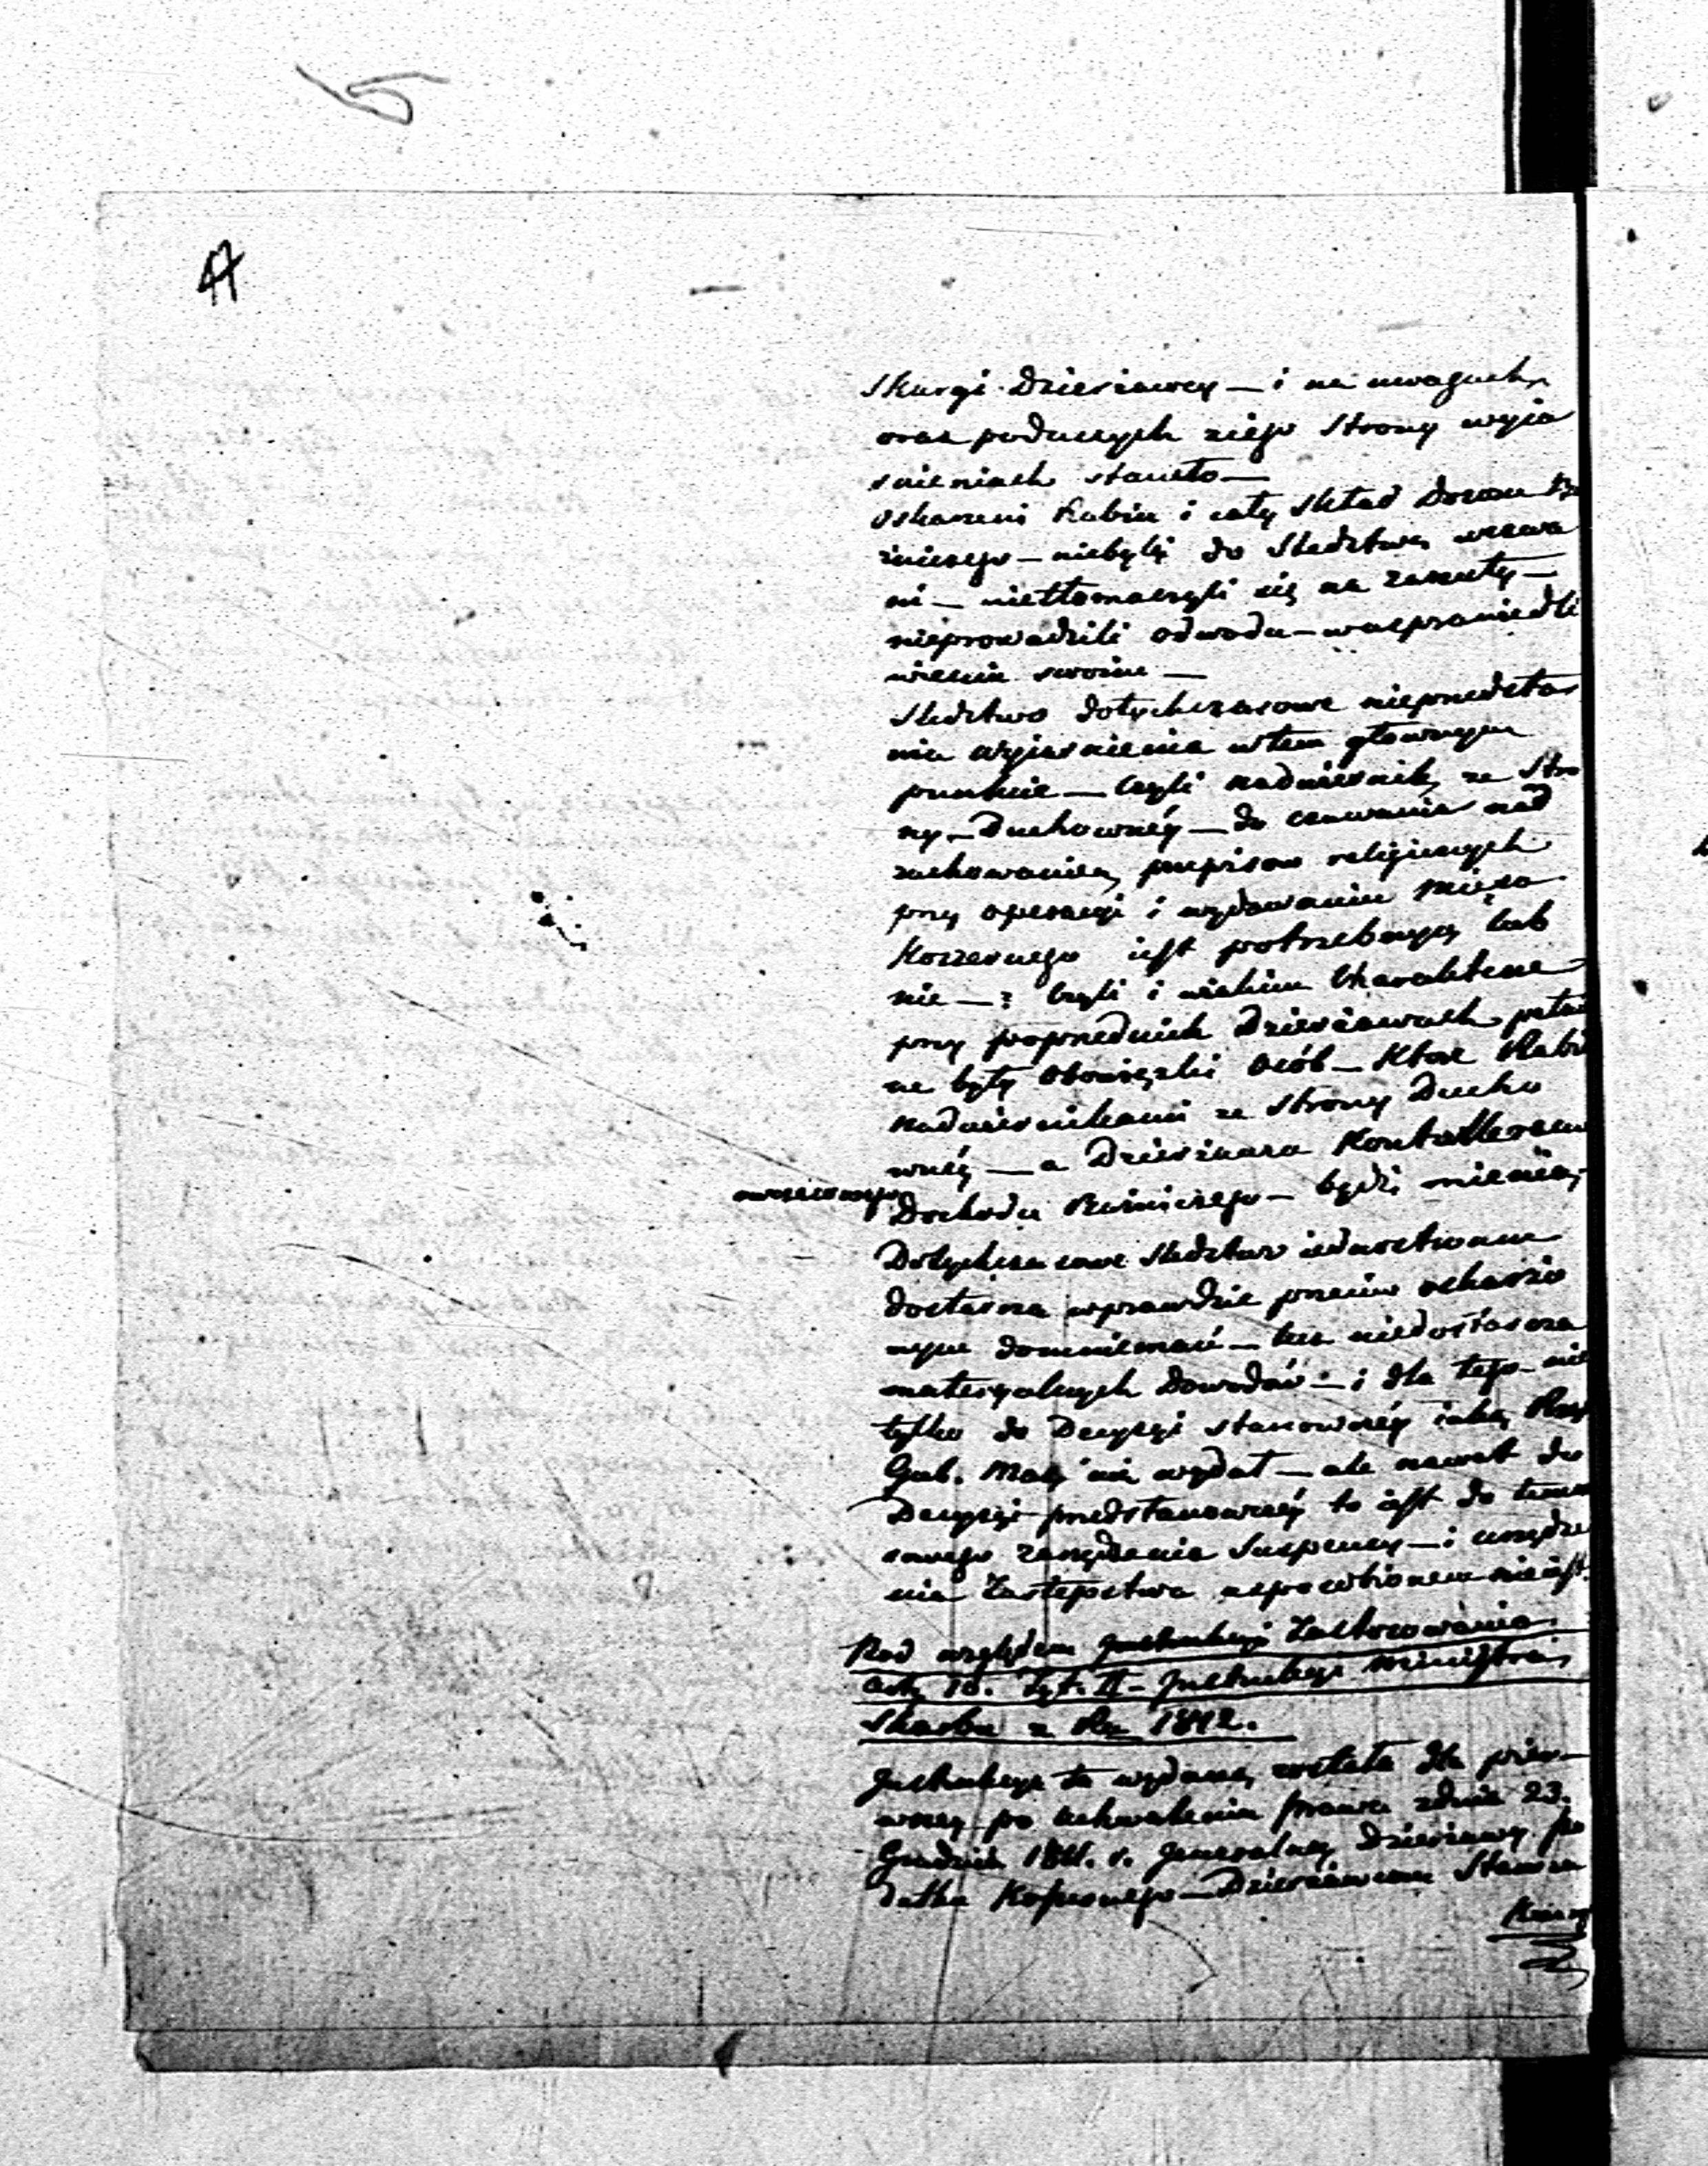 Skargi Dzierżawcy — i na uwagach
oraz poduczych ziego Strony wyia
snieniach stanęło —
Oskarzeni Rabin i cały Skład Dozoru Bo
zniczego — niebyli do Sledztwa wezwa
ni — nietłomaczyli się na zarzuty —
nieprowadzili odwodu — w usprawiedli
wieniu swoim —
Sledztwo dotychczasowe nieprzedsta
wia wyiasnienia w tem głownym
punkcie — czyli nadziernik ze Stro
ny Duchownéy — do czuwania nad
zachowaniem przepisow religijnych
przy operacyi i wydawaniu mięsa
Koszernego iest potrzebnym lub
nie — ? czyli i w iakim Charakterze
przy poprzednich Dzierżawach pełnio
ne były Obowiązki Osób — Które Rabin
nadziernikami ze Strony Ducho
wnéy — a Dzierżawca Kontrollerami
Dochodu Bożniczego — bydź mieni,
Dotychczasowe Sledztwo
dostarcza wprawdzie przeciw oskarżo
nym domniemań — lecz niedostarcza
materyalnych Dowodów — i dla tego nie
tylko do Decyzyi stanowczéy iaką Rząd
Gub. Maz: wydał — ale nawet do
Decyzyi przedstanowczéy to iest do tymcza
sowego zarządzenia Suspensy — i urządze
nia Zastępstwa usposobionem nie iest.
Pod względem Instrukcyi Zastosowania
Art. 10. Tyt. II — Instrukcyi Ministra
Skarbu z Ru 1812.
Instrukcya ta wydaną została dla pier-
wszey po uchwaleniu prawa z dnia 23.
Grudnia 1811. r. Generalney Dzierżawy po
datku Koszernego — Dzierżawcom